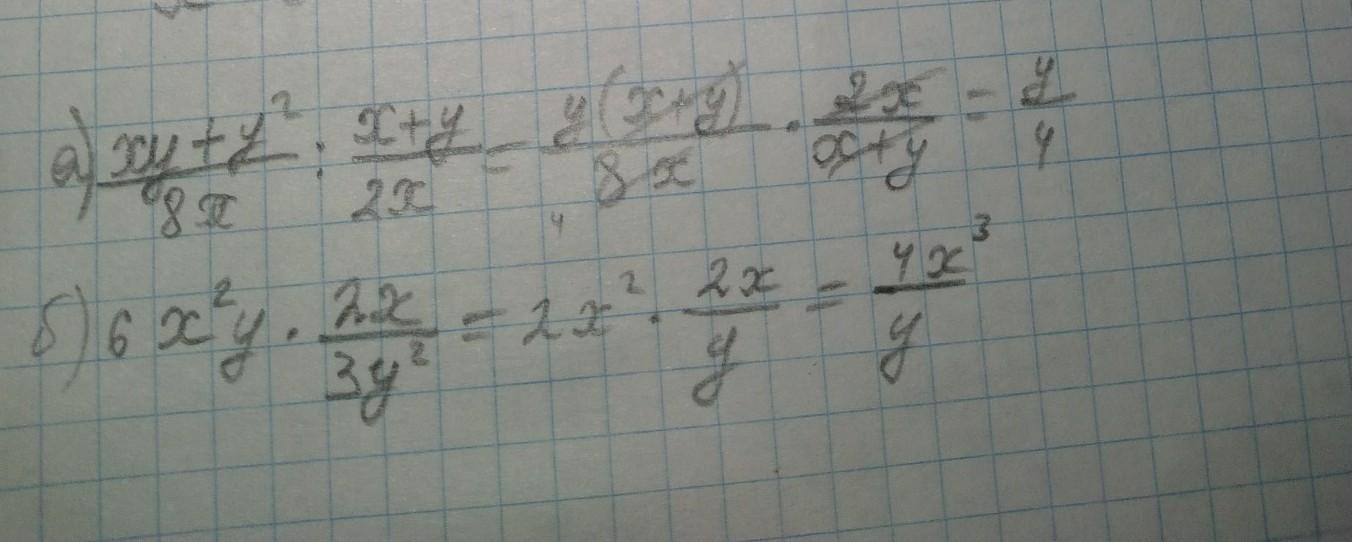 а) (xy+y²)/(8x) : (x+y)/(2x) = (y(x+y))/(8x) · (2x)/(x+y) = y/4
4
б) 6x²y · (2x)/(3y²) = 2x² · (2x)/y = (4x³)/y